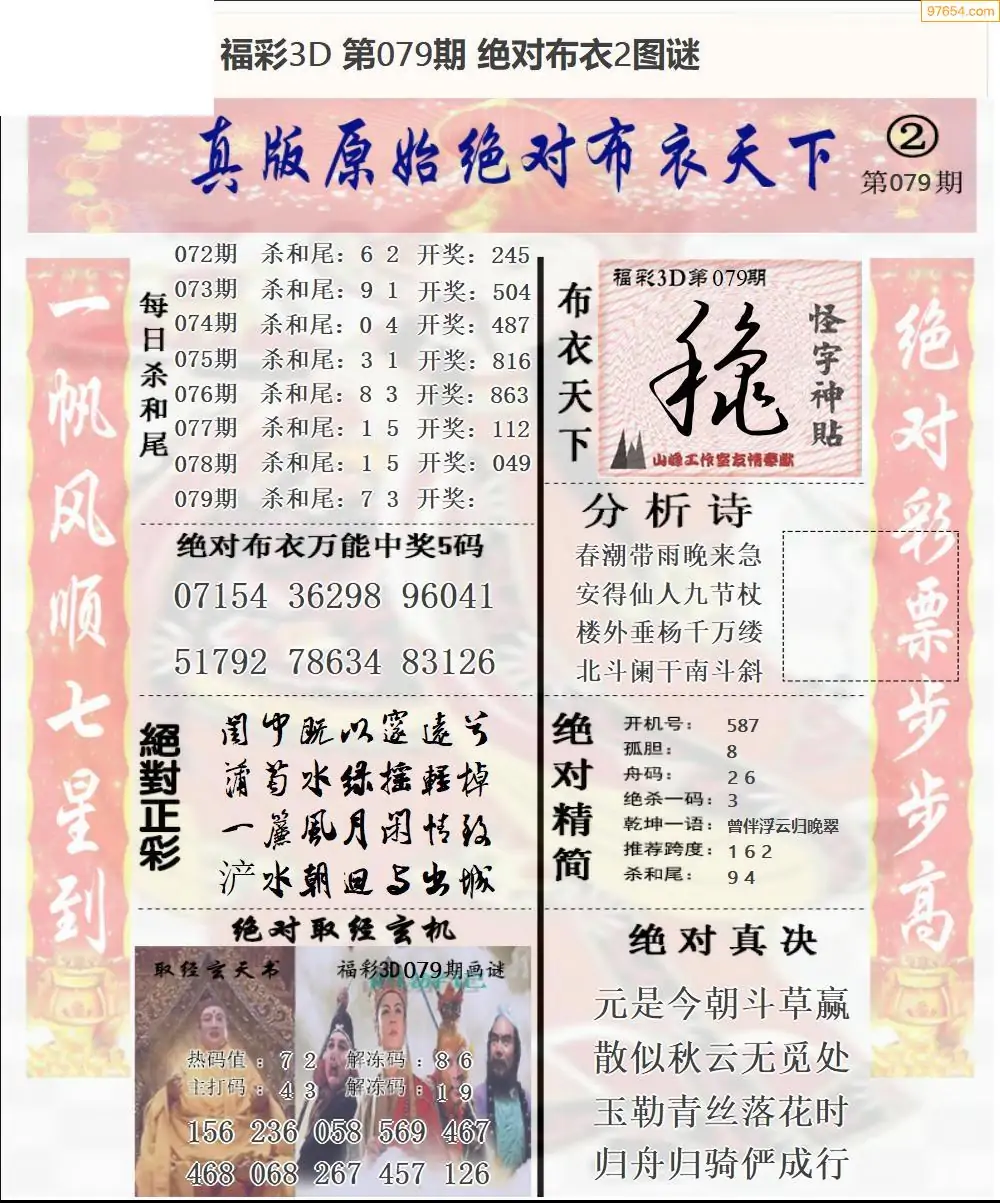 97654.com
福彩3D 第079期 绝对布衣2图谜
真版原始绝对布衣天下
②
第079期
一帆风顺七星到
每日杀和尾
072期 杀和尾：6 2 开奖：245
073期 杀和尾：9 1 开奖：504
074期 杀和尾：0 4 开奖：487
075期 杀和尾：3 1 开奖：816
076期 杀和尾：8 3 开奖：863
077期 杀和尾：1 5 开奖：112
078期 杀和尾：1 5 开奖：049
079期 杀和尾：7 3 开奖：
绝对布衣万能中奖5码
07154 36298 96041
51792 78634 83126
絕對正彩
闺中既以邃远兮
蒲萄水绿摇轻棹
一帘風月闲情致
浐水朝迴与出城
绝对取经玄机
取经玄天书
福彩3D079期画谜
热码值：7 2 解冻码：8 6
主打码：4 3 解冻码：1 9
156 236 058 569 467
468 068 267 457 126
布衣天下
福彩3D第079期
怪字神貼
山峰工作室友情奉献
分析诗
春潮带雨晚来急
安得仙人九节杖
楼外垂杨千万缕
北斗阑干南斗斜
绝对精简
开机号：587
孤胆：8
舟码：2 6
绝杀一码：3
乾坤一语：曾伴浮云归晚翠
推荐跨度：1 6 2
杀和尾：9 4
绝对真决
元是今朝斗草赢
散似秋云无觅处
玉勒青丝落花时
归舟归骑俨成行
绝对彩票步步高